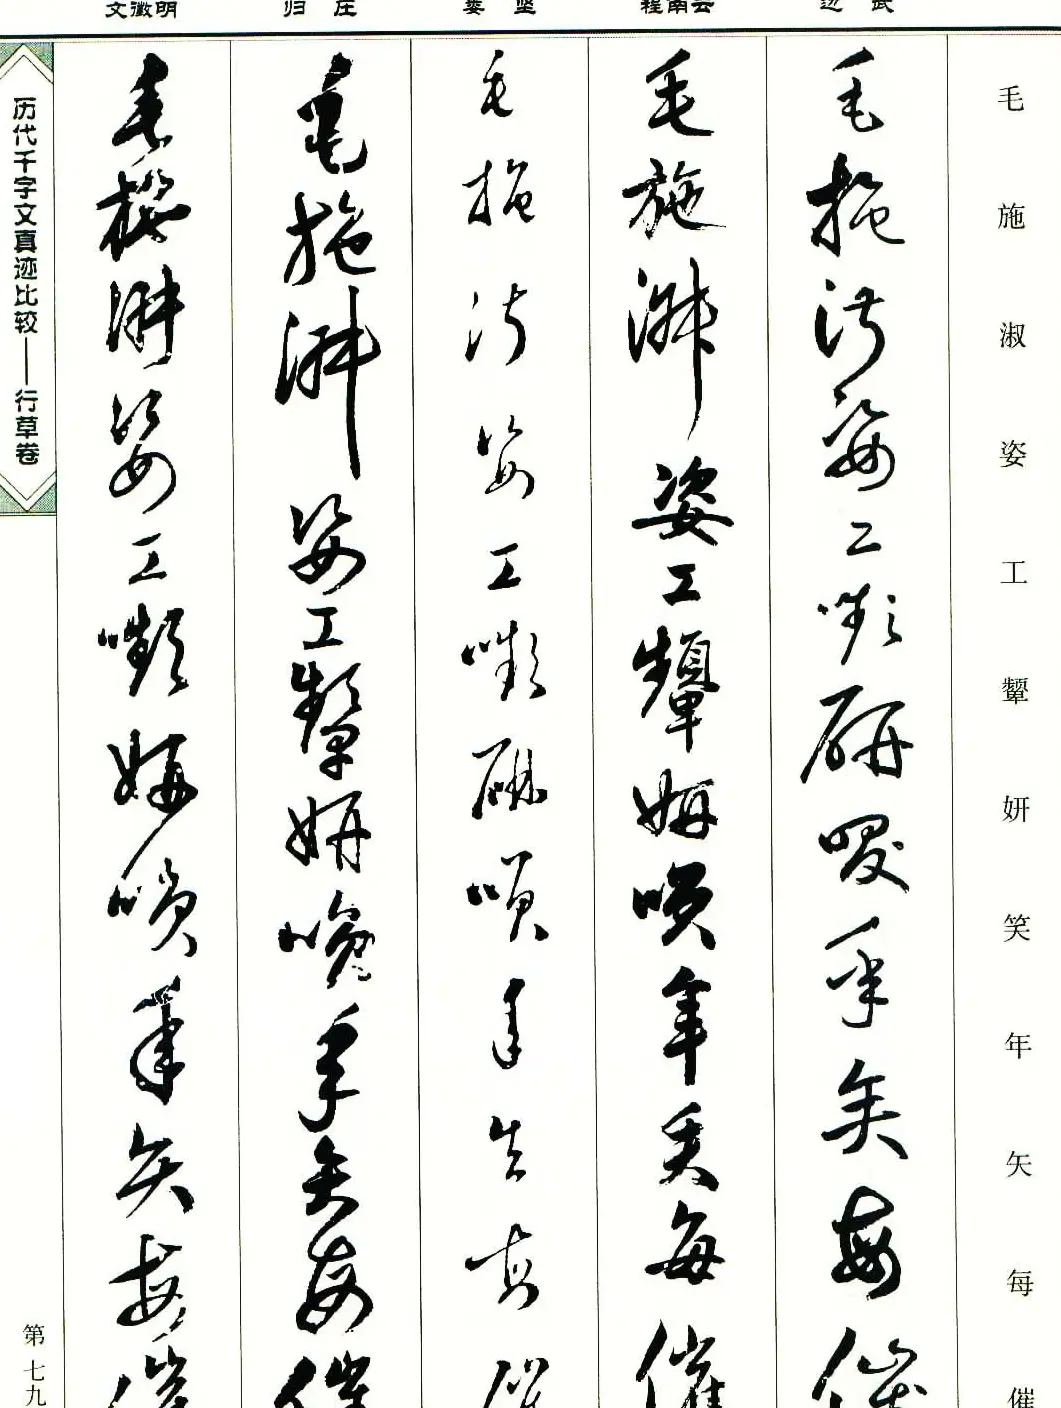 毛施淑姿工颦妍笑年矢每催
边武
毛施淑姿工嚬研咲年矢每催
程南云
毛施淑姿工顰妍咲年矢每催
娄坚
毛施淑姿工嚬研咲年矢每催
归庄
毛施淑姿工顰妍咲年矢每催
文徵明
毛施淑姿工嚬妍咲年矢每催
历代千字文真迹比较——行草卷
第七九